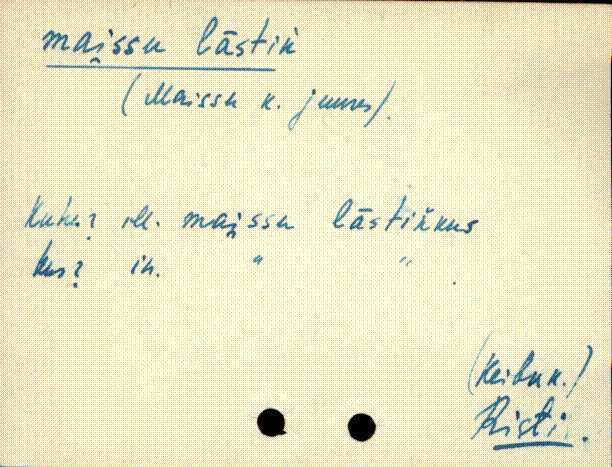 mai̯ssu lāstik
(Maissu k. juures).
Kuhu? ill. mai̯ssu lāstikkus
kus? in. " " .
(Keibu k.)
Risti.